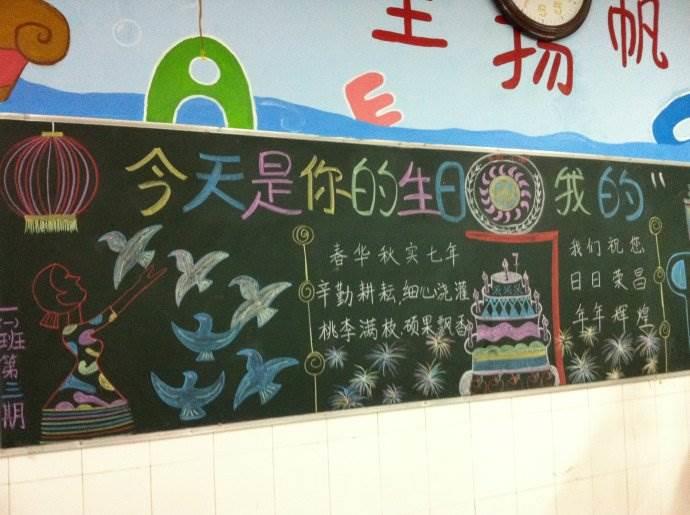 扬帆
今天是你的生日 我的"
春华秋实七年
辛勤耕耘,细心浇灌
桃李满枝,硕果飘香
我们祝您
日日荣昌
年年辉煌
一(二)班第二期
7